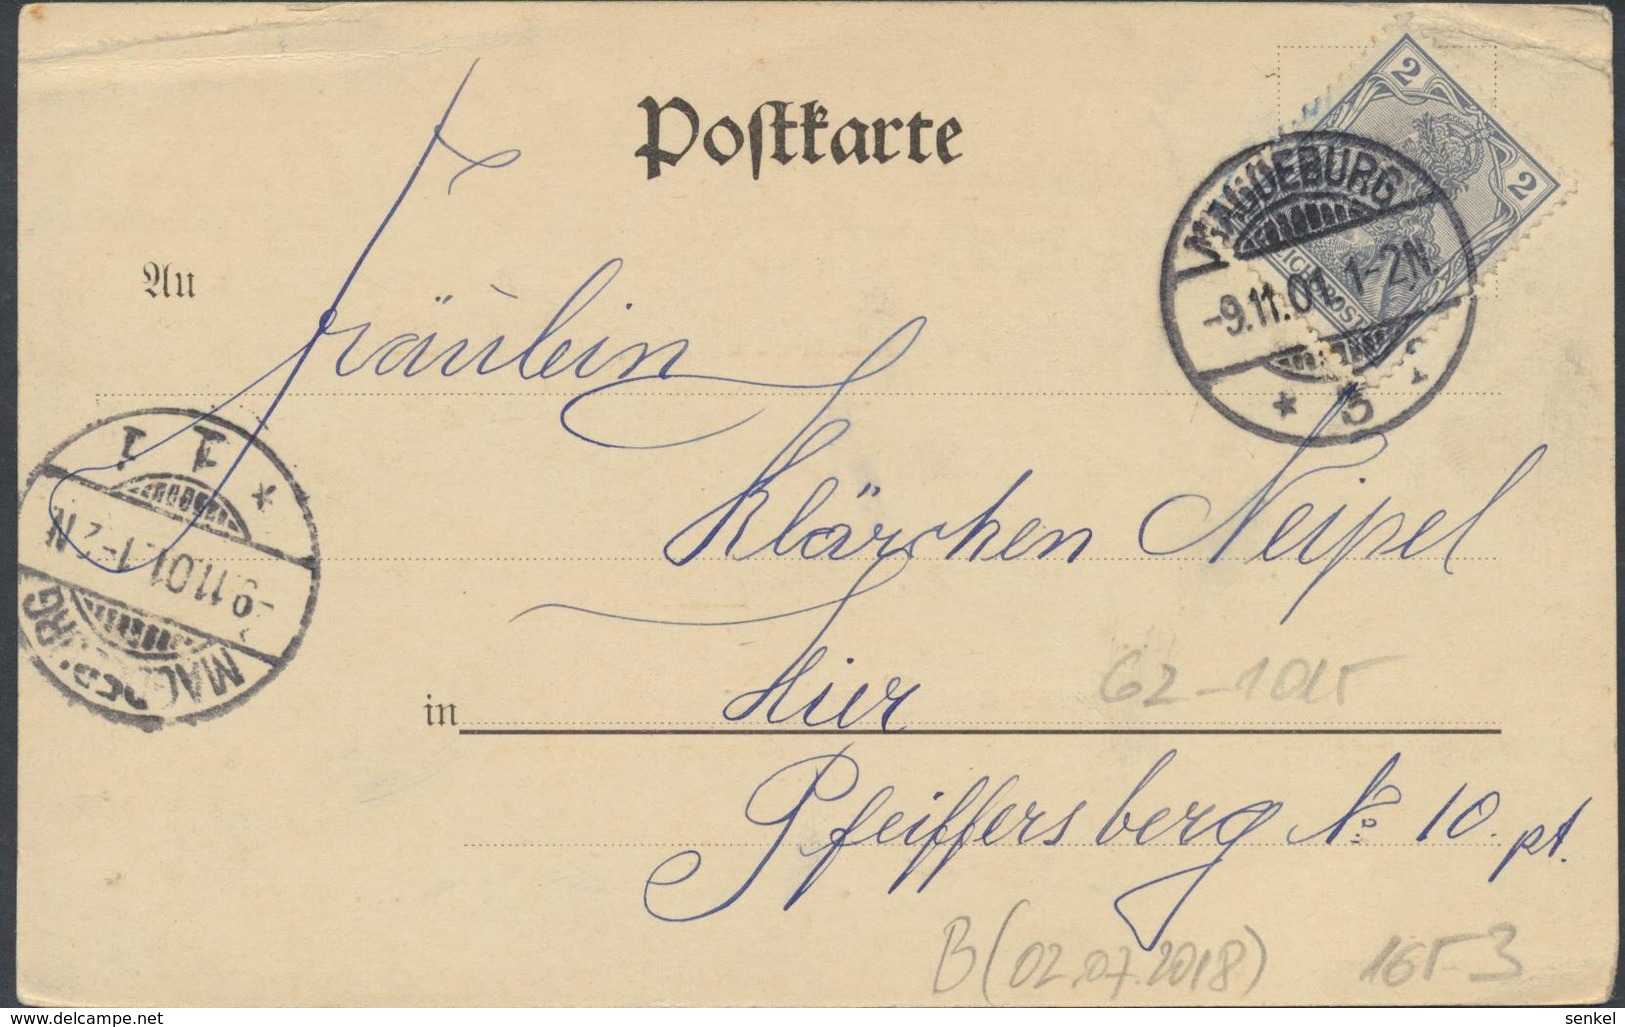 Postkarte
2
2
REICHSPOST
MAGDEBURG
-9.11.01. 1-2N.
* 3 *
An
Fräulein
Klärchen Neipel
* 1 1
-9.11.01. 1-2N
MAGDEBURG
in Hier
Pfeiffersberg No 10. pt.
B (02.07.2018)
www.delcampe.net
senkel